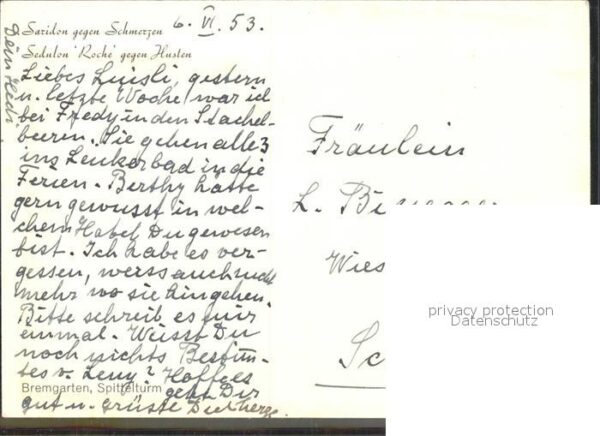 Saridon gegen Schmerzen
Sedulon 'Roche' gegen Husten
6. VI. 53.
Liebes Luisli, gestern
u. letzte Woche, war ich
bei Fredy in den Stachel-
beeren. Sie gehen alle 3
ins Leukerbad in die
Ferien. Berthy hätte
gern gewusst in wel-
chem Hotel Du gewesen
bist. Ich habe es ver-
gessen, weiss auch nicht
mehr wo sie hingehen.
Bitte schreib es mir
einmal. Weisst Du
noch nichts Bestim-
tes v. Leny? Hoffe es
geht Dir
gut u. grüsse Dich herzl.
Dein Hedi
Bremgarten, Spittelturm
Fräulein
L.
Wies
Sc
privacy protection
Datenschutz